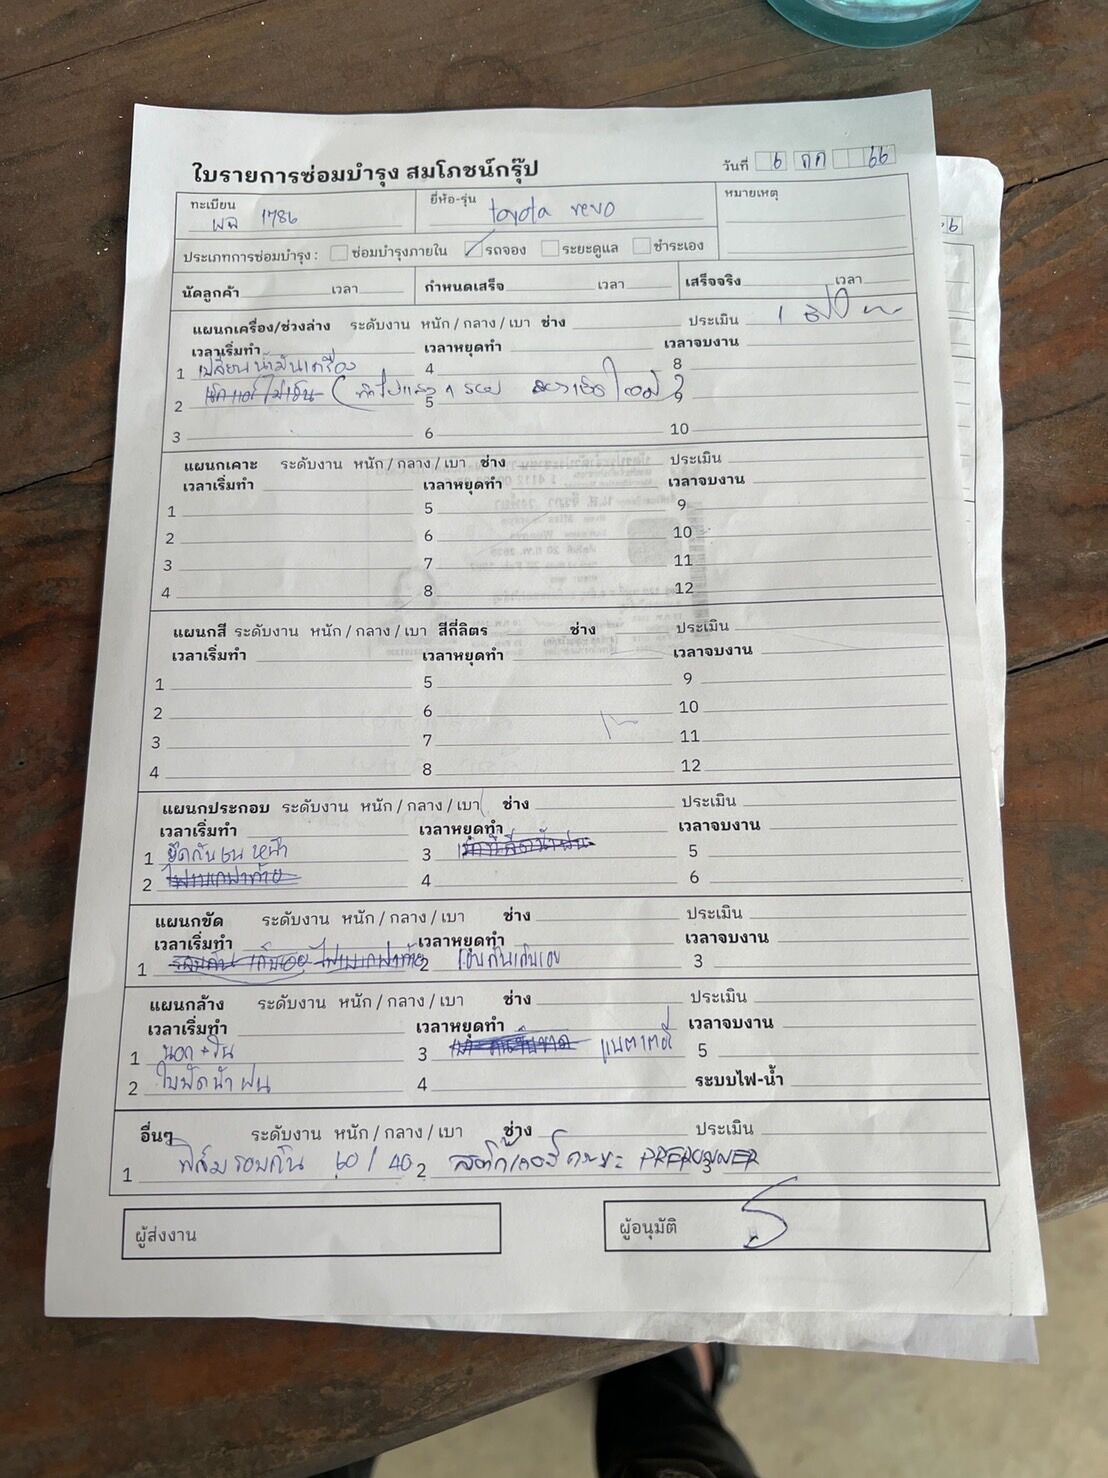 ใบรายการซ่อมบำรุง สมโภชน์กรุ๊ป
วันที่ 6 กค 66
ทะเบียน ยี่ห้อ-รุ่น หมายเหตุ
ผฉ 1786 toyota revo
ประเภทการซ่อมบำรุง : ซ่อมบำรุงภายใน รถจอง ระยะดูแล ชำระเอง
นัดลูกค้า เวลา กำหนดเสร็จ เวลา เสร็จจริง เวลา
แผนกเครื่อง/ช่วงล่าง ระดับงาน หนัก / กลาง / เบา ช่าง ประเมิน 1
เวลาเริ่มทำ เวลาหยุดทำ เวลาจบงาน
1 เปลี่ยนน้ำมันเครื่อง 4 8
2 เช็คแอร์ไม่เย็น 5 9
3 6 10
แผนกเคาะ ระดับงาน หนัก / กลาง / เบา ช่าง ประเมิน
เวลาเริ่มทำ เวลาหยุดทำ เวลาจบงาน
1 5 9
2 6 10
3 7 11
4 8 12
แผนกสี ระดับงาน หนัก / กลาง / เบา สีกี่ลิตร ช่าง ประเมิน
เวลาเริ่มทำ เวลาหยุดทำ เวลาจบงาน
1 5 9
2 6 10
3 7 11
4 8 12
แผนกประกอบ ระดับงาน หนัก / กลาง / เบา ช่าง ประเมิน
เวลาเริ่มทำ เวลาหยุดทำ เวลาจบงาน
1 ยึดกันชนหน้า 3 5
2 4 6
แผนกขัด ระดับงาน หนัก / กลาง / เบา ช่าง ประเมิน
เวลาเริ่มทำ เวลาหยุดทำ เวลาจบงาน
1 2 รอบคันเก็บรอย 3
แผนกล้าง ระดับงาน หนัก / กลาง / เบา ช่าง ประเมิน
เวลาเริ่มทำ เวลาหยุดทำ เวลาจบงาน
1 นอก+ใน 3 แบตเตอรี่ 5
2 ใบปัดน้ำฝน 4 ระบบไฟ-น้ำ
อื่นๆ ระดับงาน หนัก / กลาง / เบา ช่าง ประเมิน
1 ฟิล์มรอบคัน 60/40 2 สติ๊กเกอร์ PRERUNNER 3
ผู้ส่งงาน ผู้อนุมัติ